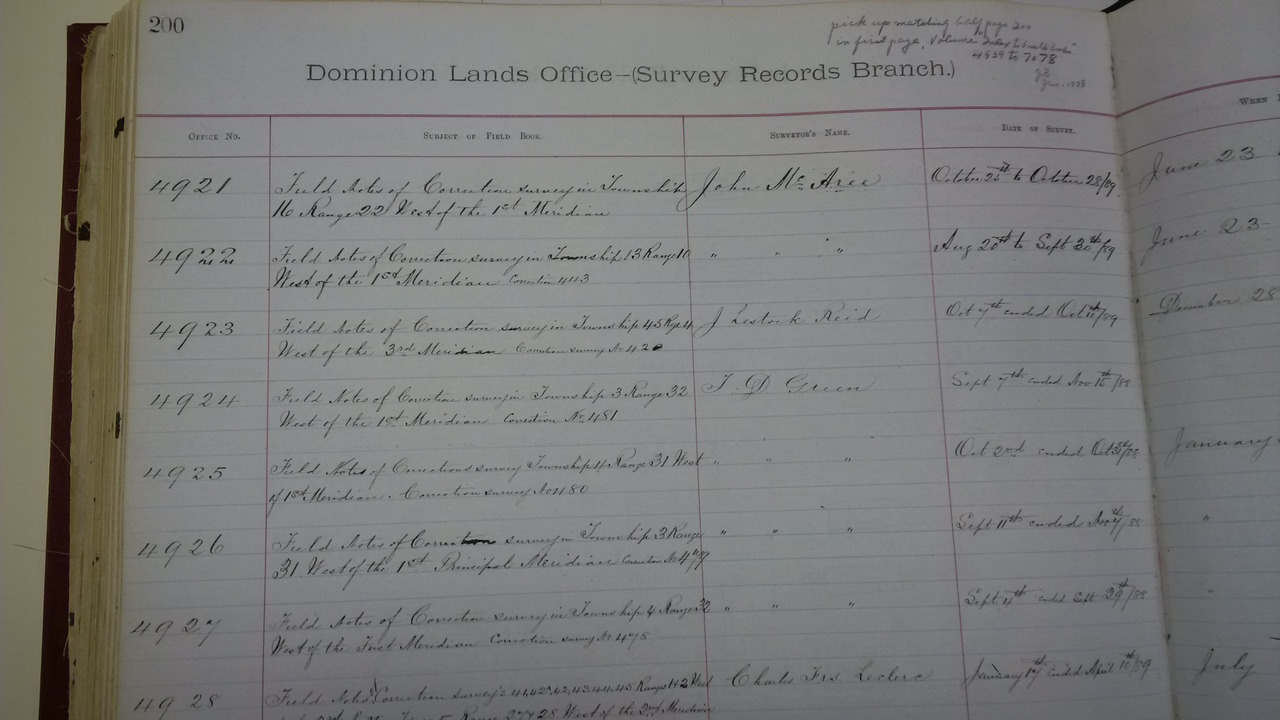 200
pick up matching half page 200
in first page, Volume "Index to Field Books"
4939 to 7078
Jan. 1938
Dominion Lands Office—(Survey Records Branch.)
Office No. Subject of Field Book. Surveyor's Name. Date of Survey. When
4921 Field Notes of Correction survey in Township John Mc Aree October 25th to October 28/89 June 23
16 Range 22 West of the 1st Meridian
4922 Field Notes of Correction survey in Township 13 Range 10 " " " Aug 20th to Sept 30th/89 June 23
West of the 1st Meridian Correction 4113
4923 Field Notes of Correction survey in Township 45 Rge 4 J Lestock Reid Oct 7th ended Oct /89 December 28
West of the 3rd Meridian Correction survey No 420
4924 Field Notes of Correction survey in Township 3 Range 32 T. D. Green Sept 7th ended Nov /88
West of the 1st Meridian Correction No. 481
4925 Field Notes of Corrections survey Township 4 Range 31 West " " " Oct 2nd ended Oct /88 January
of 1st Meridian. Correction survey No 480
4926 Field Notes of Correction survey in Township 3 Range " " " Sept 11th ended Nov /88 "
31 West of the 1st Principal Meridian Correction No 479
4927 Field Notes of Correction survey in Township 4 Range 32 " " " Sept 4th ended Sept 29th/88 "
West of the First Meridian Correction survey No 478
4928 Field Notes Correction survey 41, 42, 43, 44, 45 Ranges 1 & 2 West Charles Frs. Leclerc January ended April 10th/89 July
Range 27 & 28 West of the 2nd Meridian